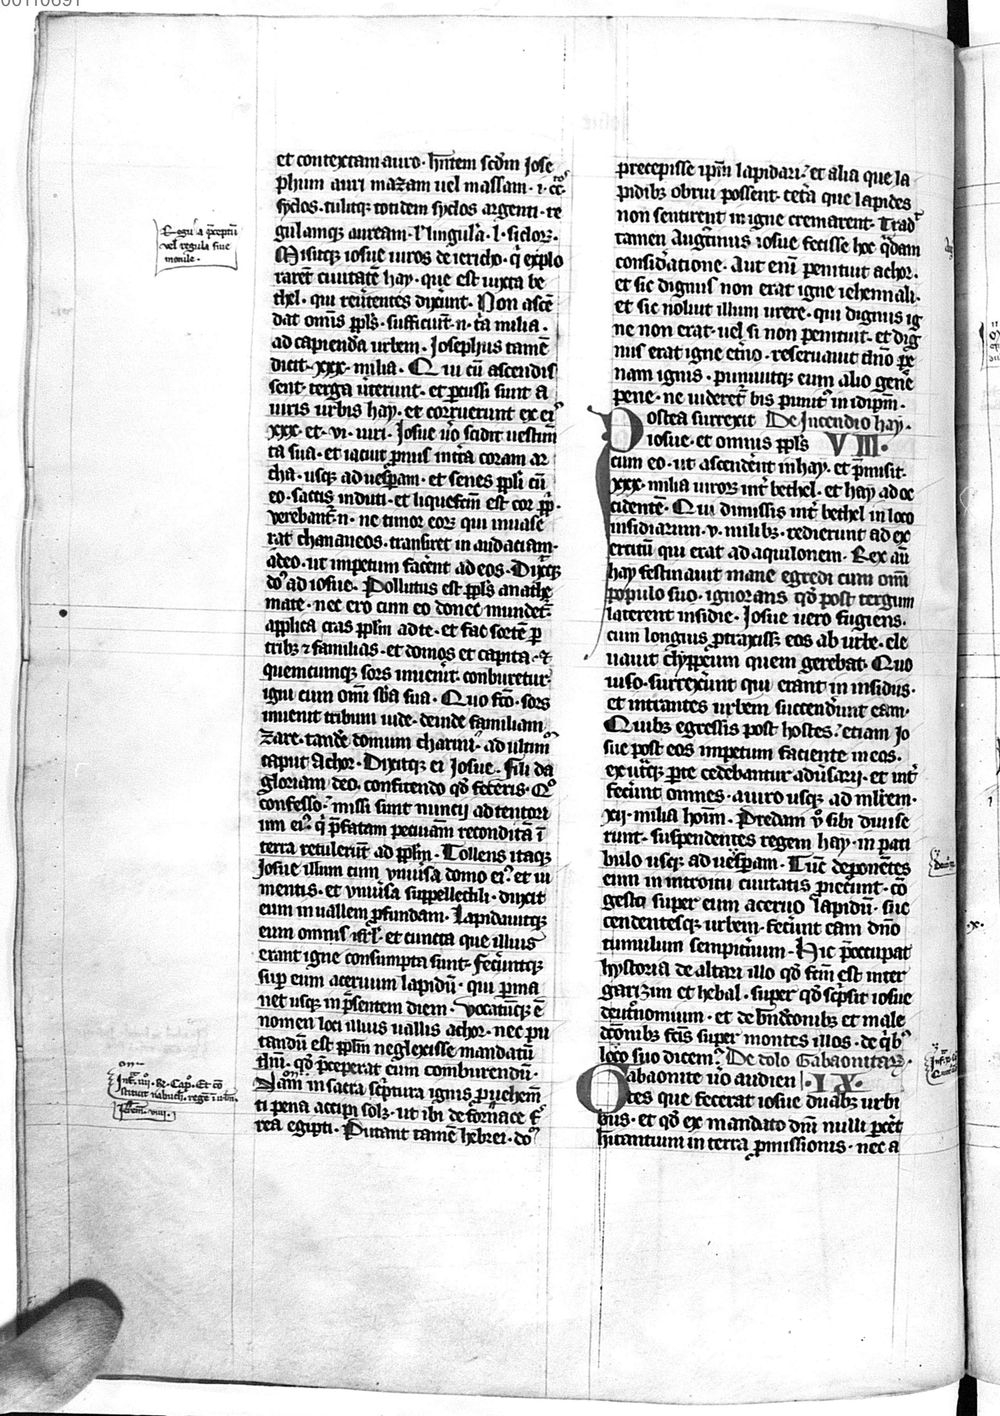 00110691
et contextam auro· hn̄tem scd̄m Jose
phum auri mazam uel massam· ·i· cc^tos
syclos· tulitq; totidem syclos argenti· re
gulamq; auream· l' lingulā· l· siclor̄·
Misitq; iosue uiros de iericho· q̇ explo
rarēt ciuitatē hay· que est iuxta be
thel· qui reūtentes dixeru̅t· Non ascē
dat omīs ppl̄s· sufficiūt ·n· t̄ia milia·
ad capienda urbem· Josephus tamē
dicit ·xxx· milia· Qui cū ascendis
sent terga ūterunt· et percussi sunt a
uiris urbis hay· et corruerunt ex eis
xxx· et ·vi· uiri· Josue ūo scidit uestim̄
ta sua· et iacuit pronus in t̄ra coram ar
cha· usq; ad uesp̄am· et senes pplī cū
eo· saccis induti· et liquefc̄m est cor pp̄li·
verebant̄ ·n· ne timor eor̄ qui inuase
rat chananeos· transiret in audaciam·
adeo· ut impetum facēent ad eos· Dixitq;
do^s ad iosue· Pollutus est ppl̄s anathe
mate· nec ero cum eo donec mundet̄·
applica cras pplm̄ ad te· et fac sortē p
tribȝ ⁊ familias· et domos et capita· ⁊
quemcumq; sors inuen̄it· conburetur
igni cum omī sb̄a sua· Quo fc̄o· sors
inuenit tribum iude· deinde familiam
zare· tandē domum charmi· ad ultimū
caput Achor· Dixitq; ei Josue· Fili da
gloriam deo· confitendo qd̄ feceris· Q°
confesso· missi sunt nuncij ad tentori
um ei^s· q̇ p̄fatam pecuniam recondita̅ ī
terra retulerūt ad pplm̄· Tollens itaq;
Josue illum cum vniuisa domo ei^s· et iu
mentis· et vniūsa suppellectili· duxit
eum in uallem p̄fundam· Lapidauitq;
eum omnis isrl̄· et cuncta que illius
erant igne consumpta sunt· fecerūtq;
sup eum aceruum lapidū· qui perma
net usq; in p̄sentem diem· vocatūq; ē
nomen loci illius uallis achor· nec pu
tandū est pplm̄ neglexisse mandatū
dn̄i· qd̄ p̄ceperat eum comburendū·
Nam in sacra sc̄ptura ignis p̄ uehem̄
ti pena accipi solȝ· ut ibi de fornace fer
rea egipti· Putant tamē hebrei· do^m
precepisse ip̄m lapidari· et alia que la
pidibȝ obrui possent· cet̄a que lapides
non sentirent in igne cremarent· Trad^t
tamen Augustinus iosue fecisse hoc q̄dam
consideratione· Aut eni̅ penituit achor·
et sic dignus non erat igne iehennali·
et sic noluit illum urere· qui dignus ig
ne non erat· uel si non penituit· et dig
nus erat igne et̄no· reseruauit dn̄o pe
nam ignis· puniuitq; eum alio genē
pene· ne uideret̄ bis punit^s in id ipm̄·
Postea surrexit De Incendio hay·
iosue· et omnis ppl̄s VIII·
cum eo· ut ascendēnt in hay· et p̄misit·
xxx· milia uiror̄ int̄ bethel· et hay ad oc
cidentē· Qui dimissis int̄ bethel in loco
insidiarum ·v· milibȝ· redierunt ad ex
ercitū qui erat ad aquilonem· Rex aū
hay festinauit mane egredi cum omī
populo suo· ignorans qd̄ post tergum
laterent insidie· Josue uero fugiens·
cum longius p̄traxissȝ eos ab urbe· ele
uauit clyppeum quem gerebat· Quo
uiso· surrexerunt qui erant in insidiis·
et intrantes urbem succenderunt eam·
Quibȝ egressis post hostes· etiam Jo
sue post eos impetum faciente in eos·
ex utq; parte cedebantur adūsarij· et int̄
fecerunt omnes· a uiro usq; ad mlr̄em·
xij· milia hoīm· Predam ū sibi diuise
runt· suspendentes regem hay· in pati
bulo usq; ad uesp̄am· Tūc deponētes
eum in introitu ciuitatis p̄iecerunt· cō
gesto super eum aceruo lapidū· suc
cendentesq; urbem· fecerunt eam dn̄o
tumulum sempit̄num· Hic p̄occupat
hystoria de altari illo qd̄ fcm̄ est inter
garizim et hebal· super qd̄ scp̄sit iosue
deut̄onomium· et de bn̄dcōnibȝ et male
dcōnibȝ fc̄is super montes illos· de q̇bȝ
loco suo dicem^s· De dolo Gabaonitar̄·
Gabaonite ūo audien ·IX·
tes que fecerat iosue duabȝ urbi
bus· et qd̄ ex mandato dn̄i nulli parcēt
hītantium in terra p̄missionis· nec a
vel regula siue
monile·